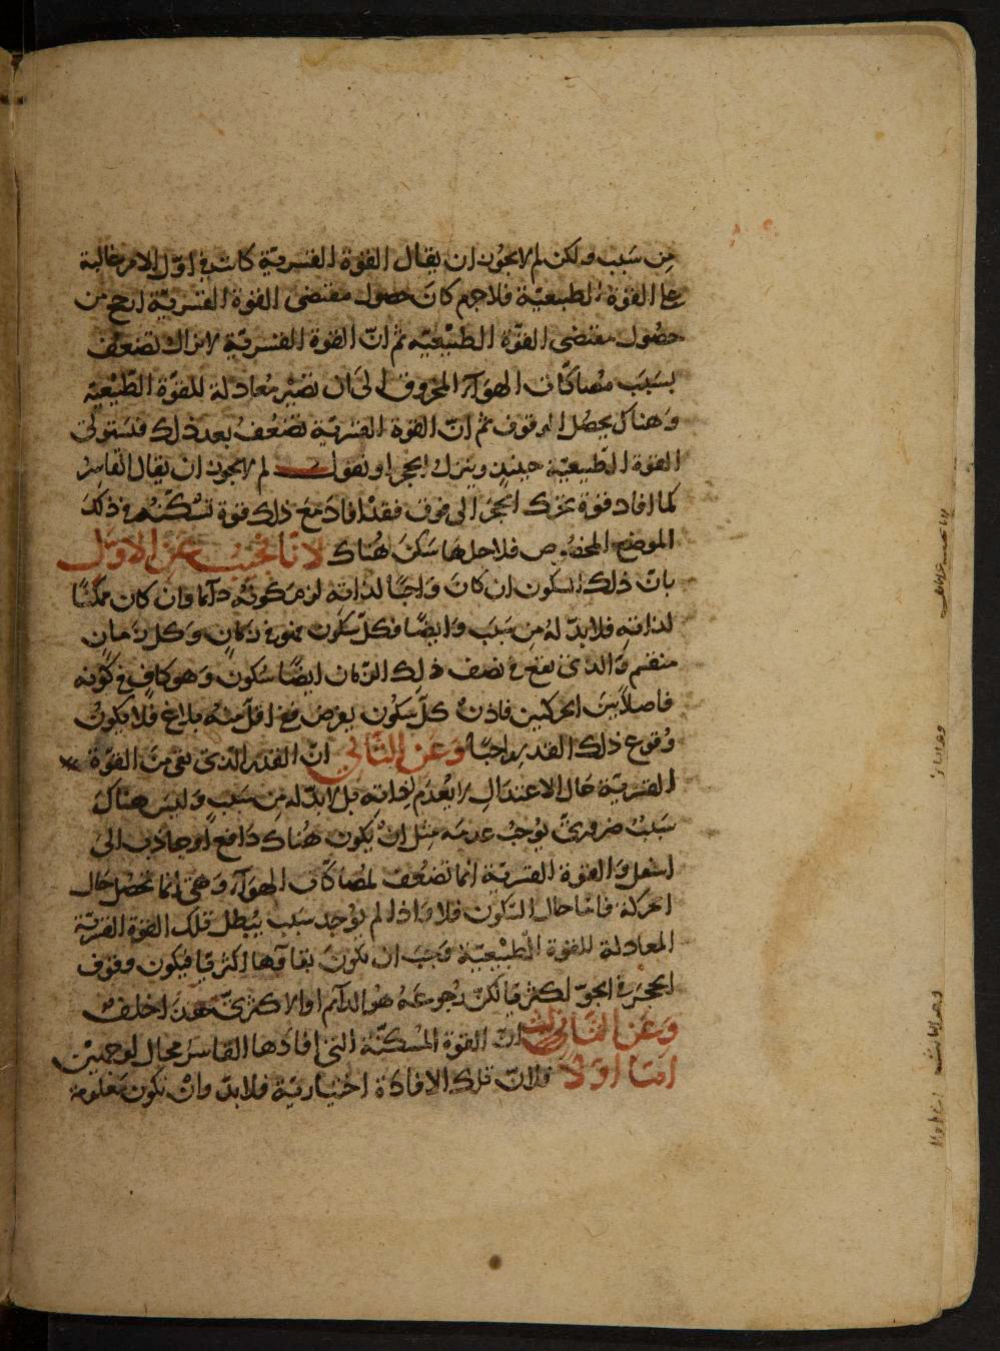 من سبب ولكن لم لا يجوز ان يقال القوة القسرية كانت في اوّل الامر غالبة
على القوة الطبيعيّة فلاجرم كان حصول مقتضى القوة القسريّة ارجح من
حصول مقتضى القوّة الطبيعيّه ثم انّ القوة القسريّة لا تزال تضعف
بسبب مصاكّات الهوآء المخروق الى ان تصير معادلة للقوّة الطّبيعيّه
وهناك يحصل الوقوف ثم انّ القوة القسريّة تضعف بعد ذلك فتستولى
القوة الطّبيعيّة حينئذٍ وينزل الحجر او نقول لم لا يجوز ان يقال القاسر
كما افاد قوة تحرّك الحجر الى فوق فقد افاد مع ذلك قوة تسكّنه في ذلك
الموضع المخصوص فلاجلها سكن هناك لانا نجيب عن الاول
بانّ ذلك السكون ان كان واجبًا لذاته لزم كونه دآئما وان كان ممكنًا
لذاته فلا بدّ له من سبب وايضًا فكلّ سكون فهو في زمانٍ وكلّ زمانٍ
منقسم والذى يقع في نصف ذلك الزمان ايضًا سكون وهو كافٍ في كونه
فاصلًا بين الحركتين فاذن كلّ سكون يفرض فع اقلّ منه بلاغ فلا يكون
وقوع ذلك القدر واجبًا وعن الثاني انّ القدر الذى بقى من القوّة
القسريّة حال الاعتدال لا يعدم لذاته بل لا بدّ له من سبب وليس هناك
سبب ضرورىّ يوجب عدمه مثل ان يكون هناك دافع او جاذب الى
اسفل والقوة القسريّة انما تضعف لمصاكّات الهوآء وهى انما تحصل حال
الحركة فامّا حال السكون فلا واذا لم يوجد سبب يبطل تلك القوة القسريّة
المعادلة للقوة الطّبيعيّة وجب ان يكون بقاؤها اكثريًا فيكون وقوف
الحجر في الجوّ اكثريا لكن رجوعه هو الدآئم او الاكثرىّ هذا خلف
وعن الثالث انّ القوة المسكّنة التى افادها القاسر محال لوجهين
امّا اولا فلانّ تلك الافادة اختياريّة فلا بدّ وان تكون معلومة